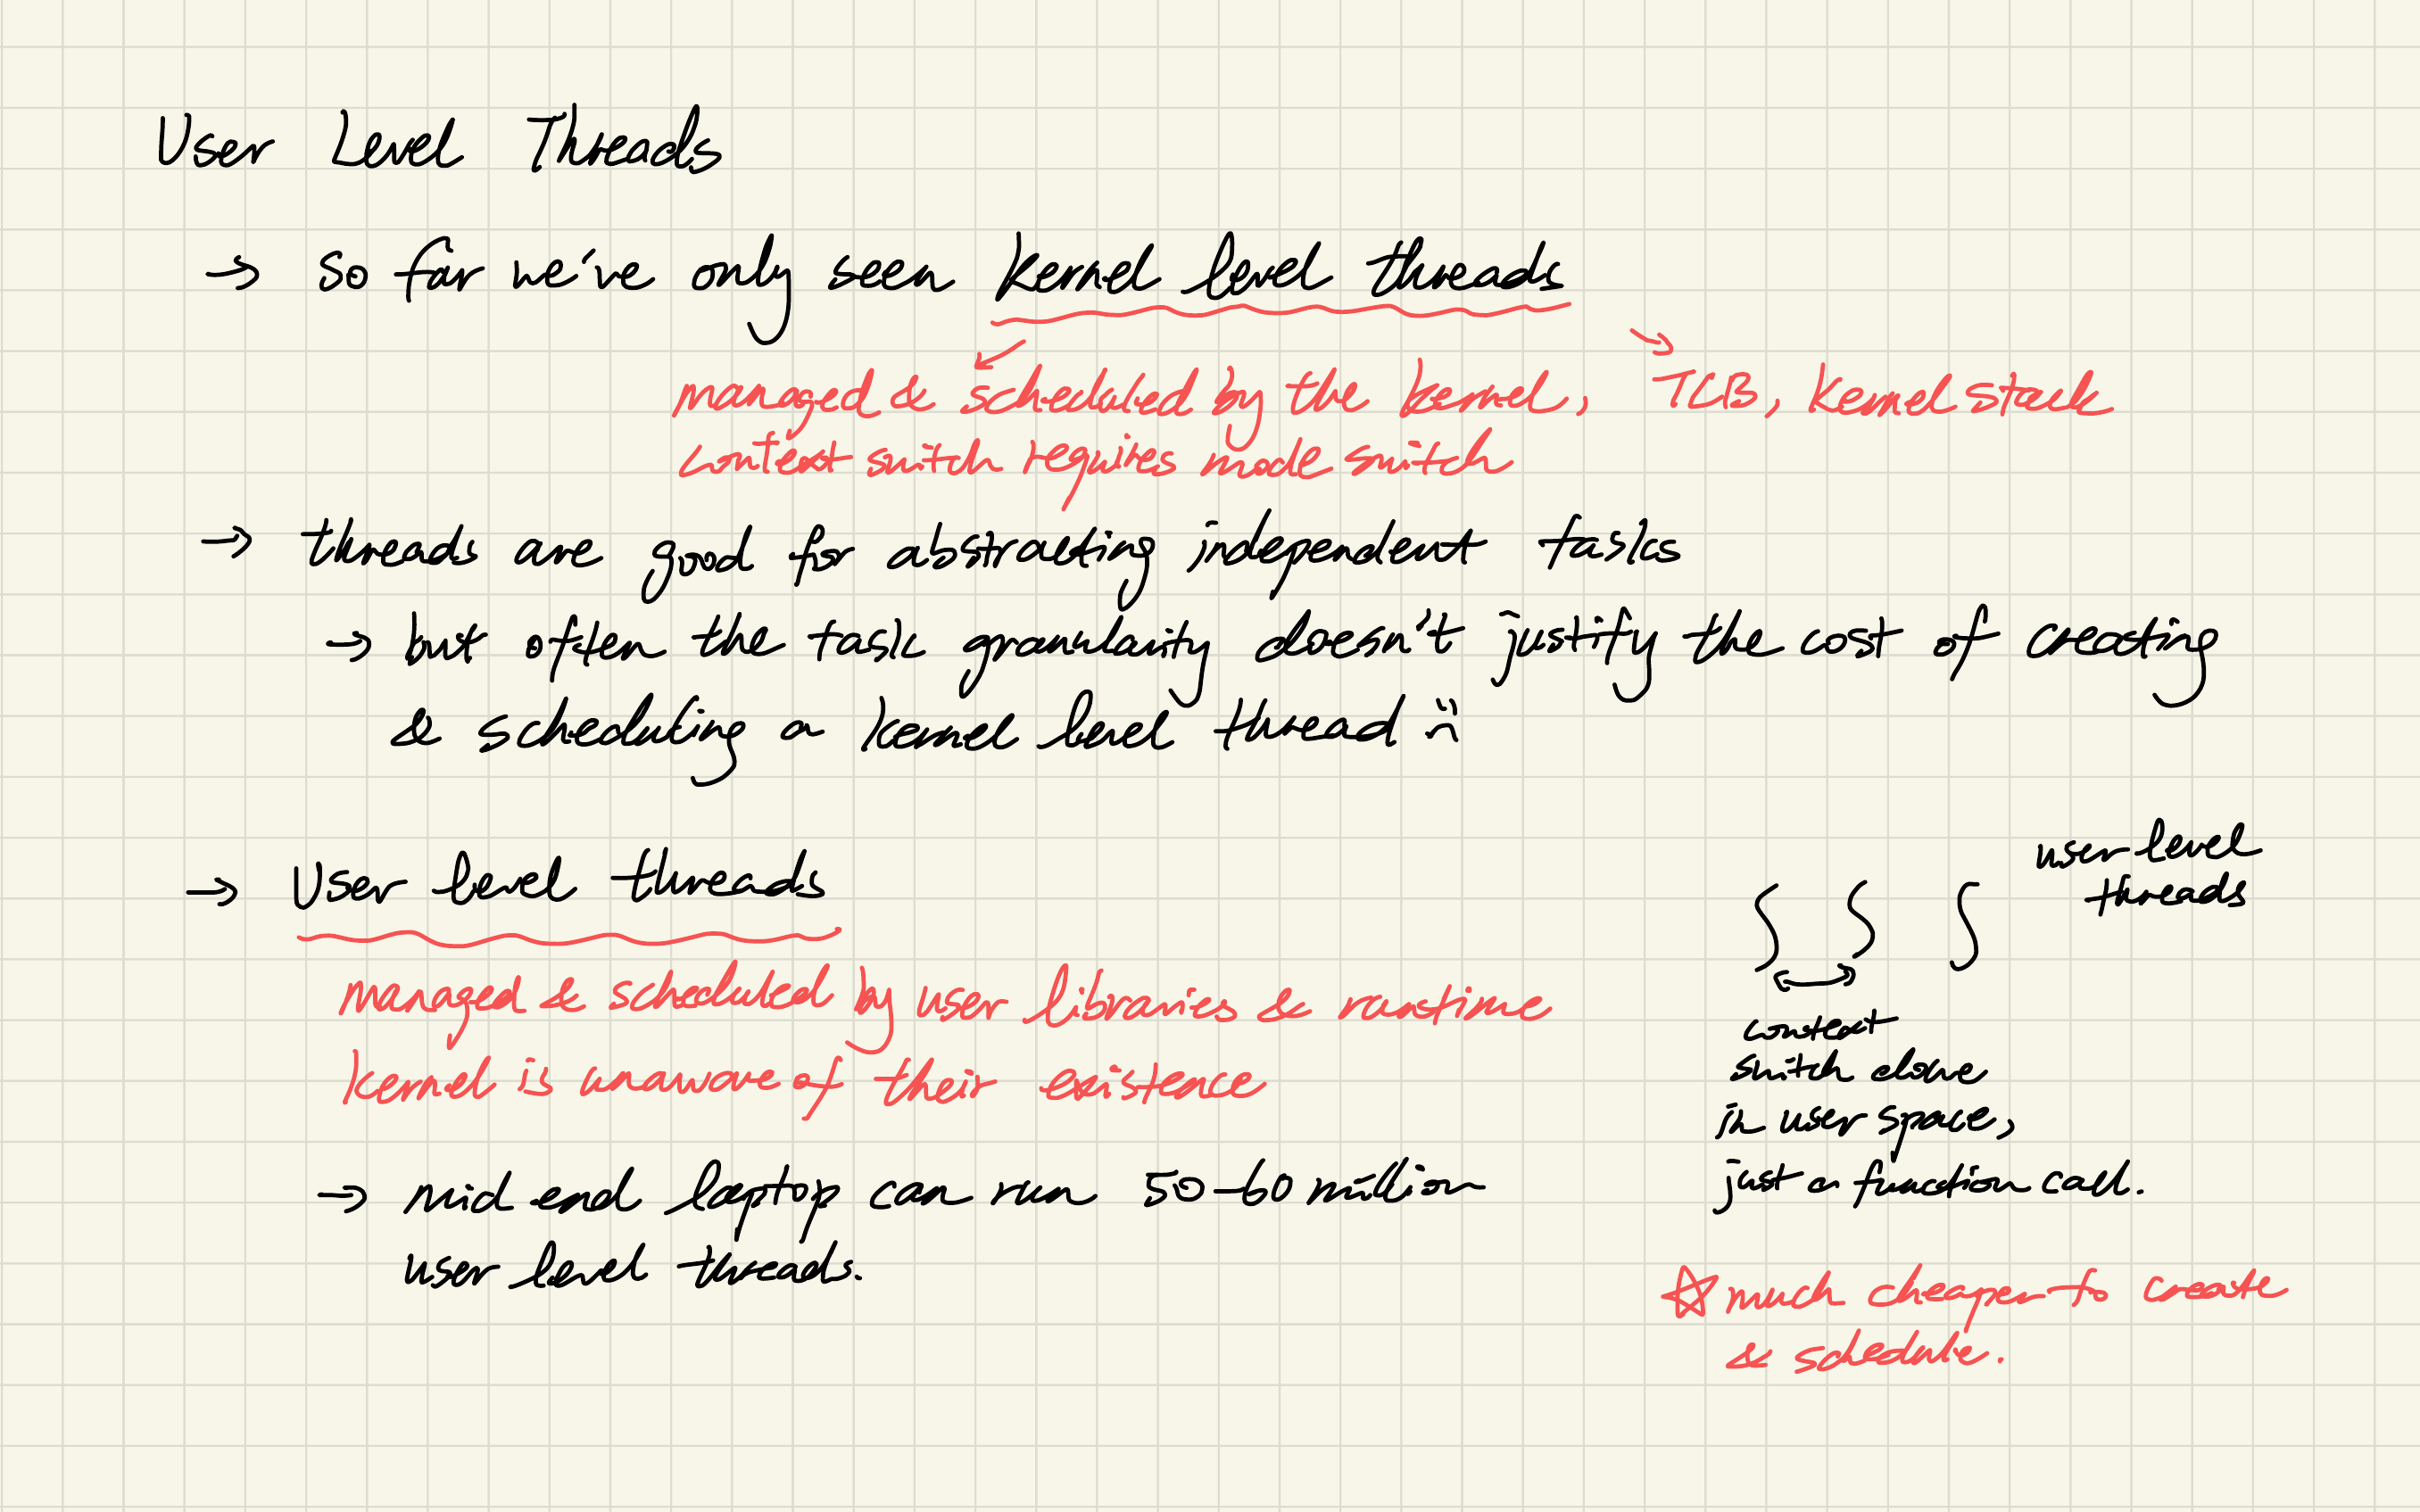 User Level Threads
→ so far we've only seen kernel level threads
managed & scheduled by the kernel, TCB, kernel stack
context switch requires mode switch
→ threads are good for abstracting independent tasks
→ but often the task granularity doesn't justify the cost of creating
& scheduling a kernel level thread :(
→ User level threads
managed & scheduled by user libraries & runtime
kernel is unaware of their existence
→ mid end laptop can run 50-60 million
user level threads.
user level
threads
context
switch done
in user space,
just a function call.
☆ much cheaper to create
& schedule.